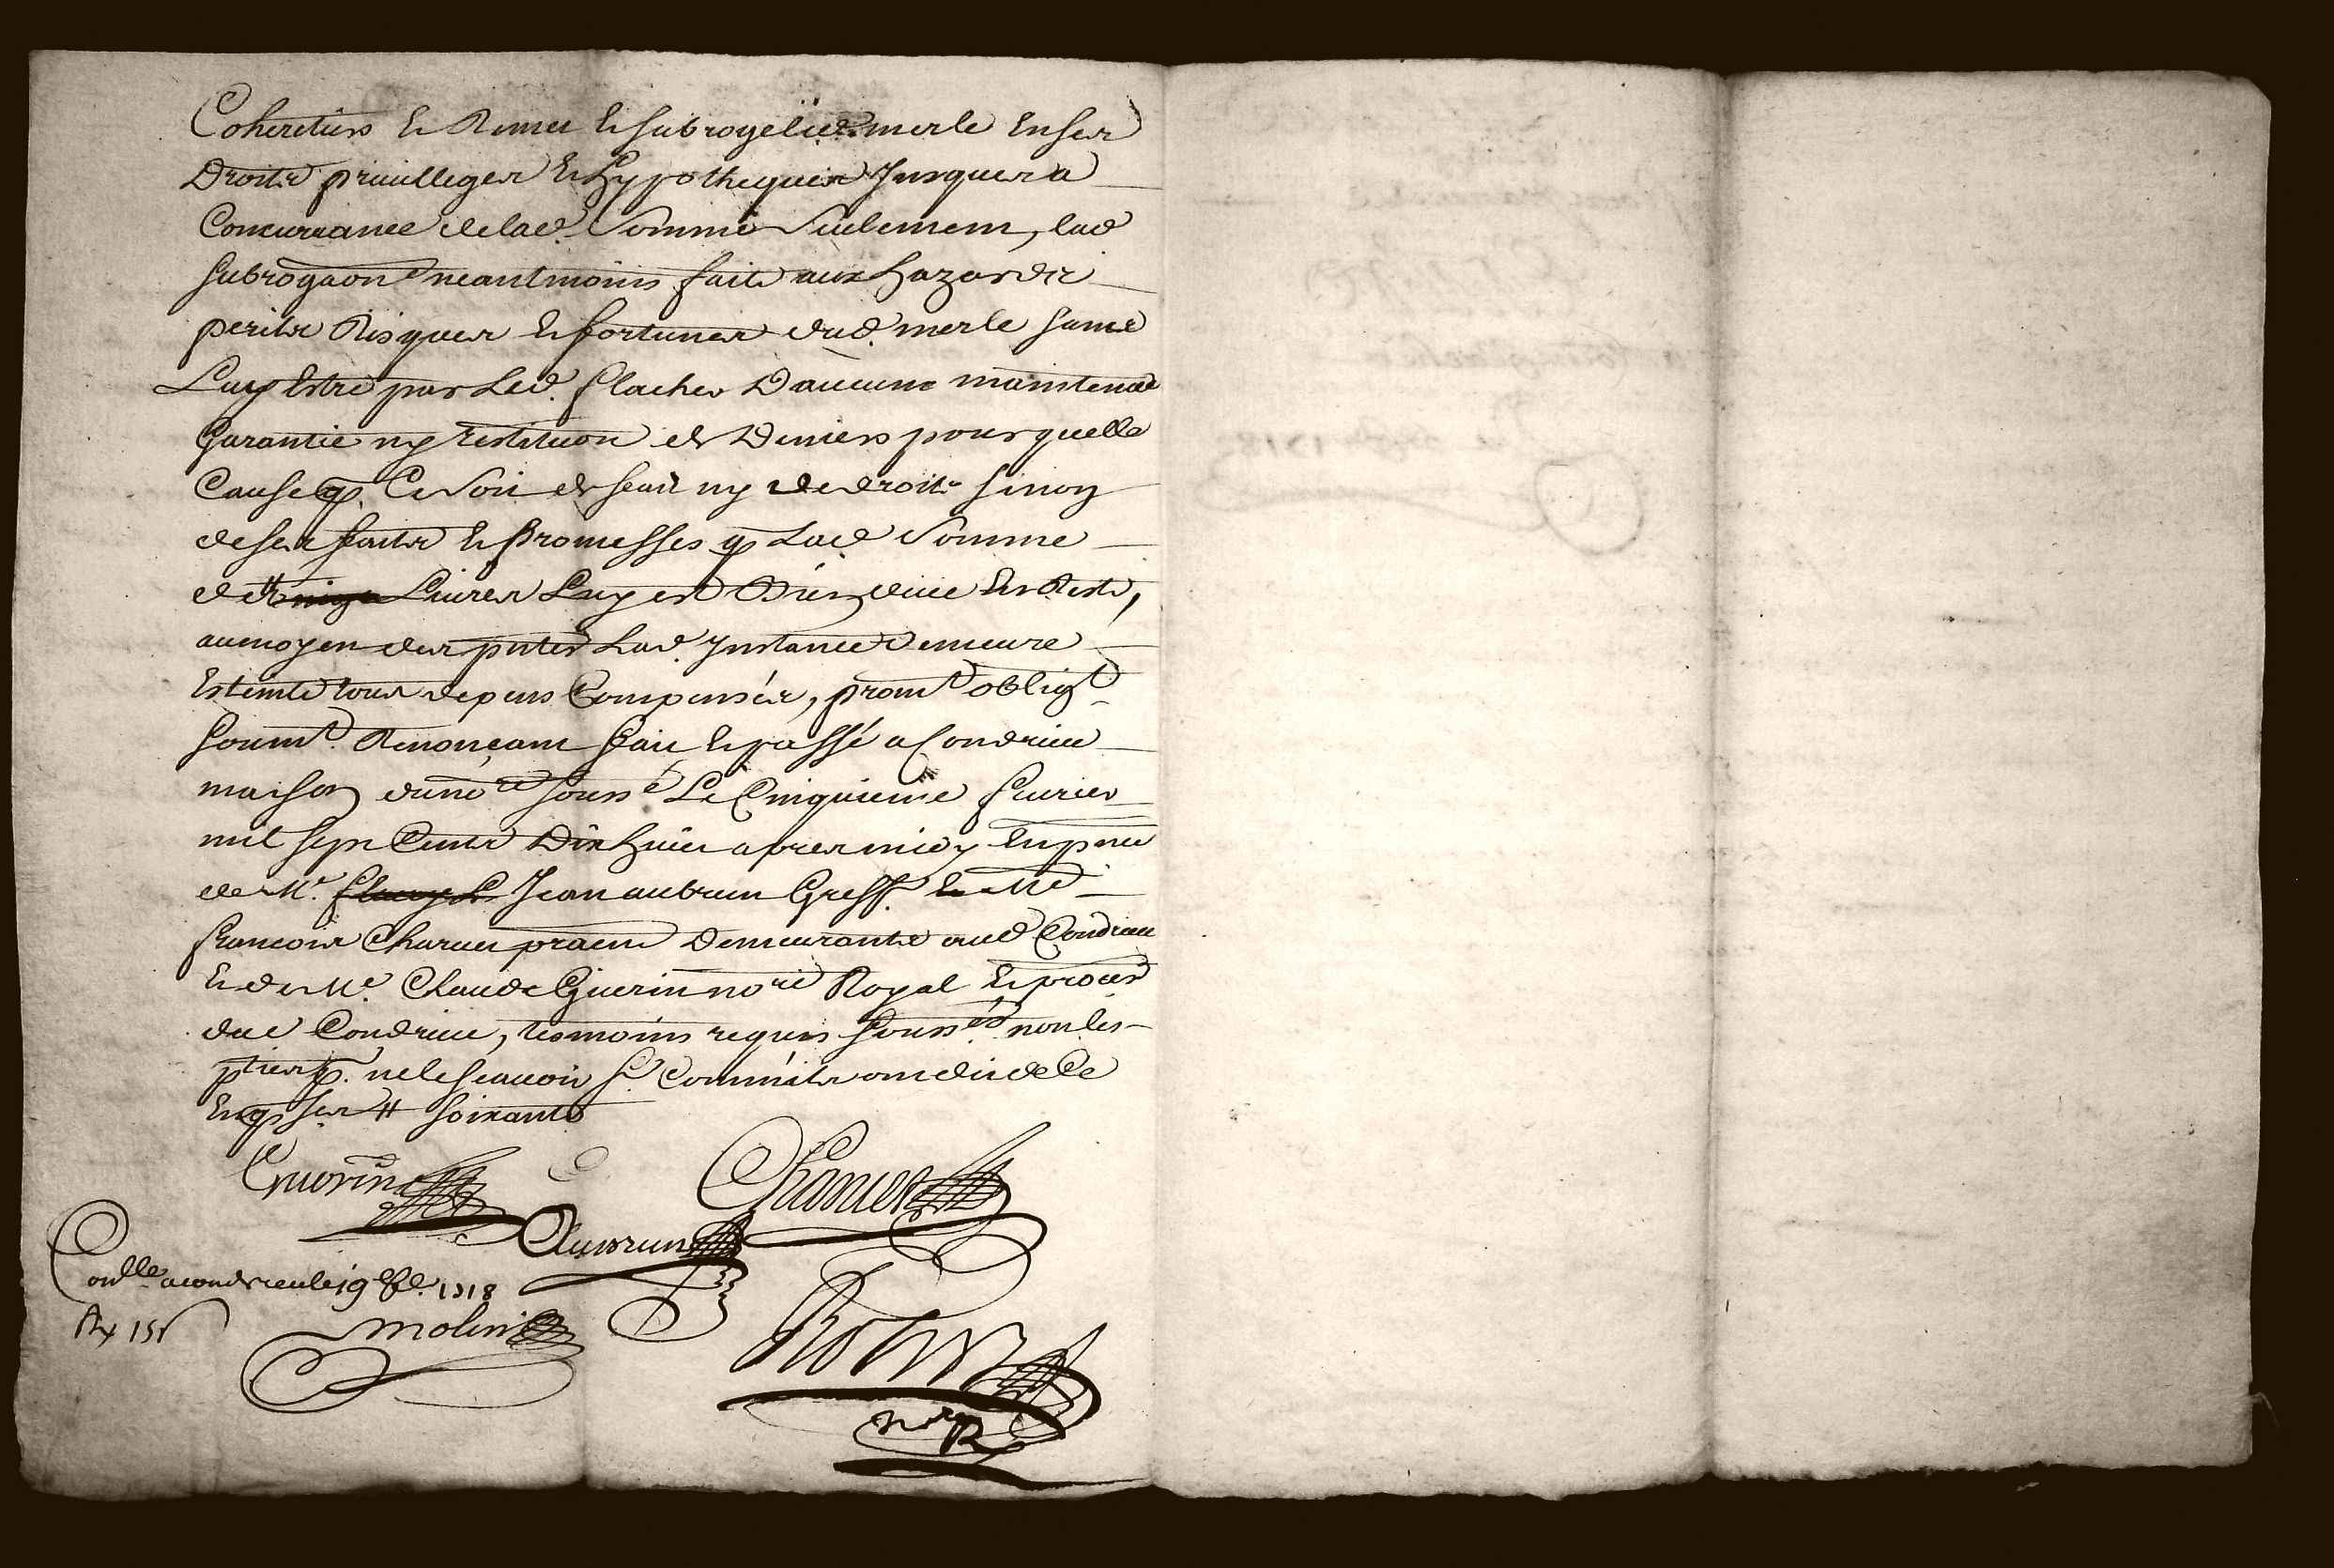 Coheretiers et Remet et subroge led. merle en ses
Droits privilleges et hypotheques Jusques a
Concurrance delad. somme seulement, lad
subrogaon neantmoins faite aux hazards
perils Risques et fortunes dud. merle sans
Luy Estre par Led. flacher D'aucune maintenüe
Garantie ny restituon de Deniers pour quelle
Cause q. Ce soit de fait ny de droits sinon
de ses faits et promesses q Lad somme
de # Livres Luy est Bien düe Et Reste,
au moyen des pntes Lad. Instance demeure
Esteinte tous depens Compensés, promt obligt
soumt. Renonçant fait et passé a Condrieu
maison du nore sousé Le Cinquieme fevrier
mil sept Cents Dix huit apres midy En pnce
de Me. Jean aubrun Greff. et Me
francois Charuet praen Demeurants aud Condrieu
et de Me. Claude Guerin nore Royal et procer
dud Condrieu, tesmoins requis soussés. non les
pties p. ne le scavoir
# soixante
Guerin
Charuet
Aubrun
Conlle a condrieu le 19e fe. 1718
Rx 15s
Molin
nore R